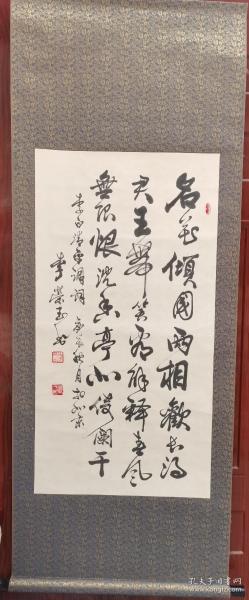 名花傾國兩相歡長得
君王帶笑看解釋春風
無限恨沈香亭北倚闌干
李白清平調詞 秋月於北京
李榮玉
孔夫子旧书网